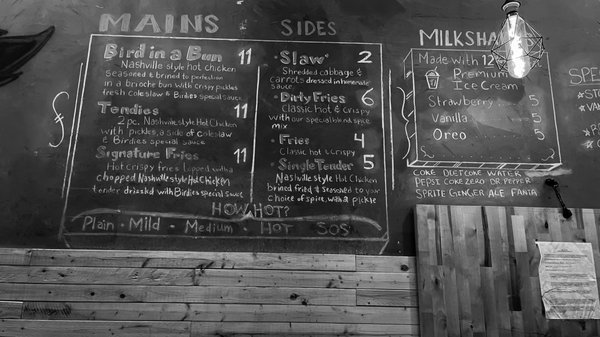 MAINS
Bird in a Bun 11
Nashville style hot chicken
seasoned & brined to perfection
in a brioche bun with crispy pickles
fresh coleslaw & Birdies special sauce
Tendies 11
2 pc. Nashville style Hot Chicken
with pickles, a side of coleslaw
& Birdies special sauce
Signature Fries 11
Hot crispy fries topped with a
chopped Nashville style Hot Chicken
tender drizzled with Birdies special sauce
SIDES
Slaw 2
Shredded cabbage &
carrots dressed in homemade
sauce.
Dirty Fries 6
Classic hot & Crispy
with our special blend spice
mix
Fries 4
Classic hot & crispy
Single Tender 5
Nashville style Hot Chicken
brined fried & seasoned to your
choice of spice, with a pickle
HOW HOT?
Plain - Mild - Medium - HOT SOS
MILKSHA
Made with 12
Premium
Ice Cream
Strawberry 5
Vanilla 5
Oreo 5
COKE DIET COKE WATER
PEPSI COKE ZERO DR PEPPER
SPRITE GINGER ALE FANTA
SPE